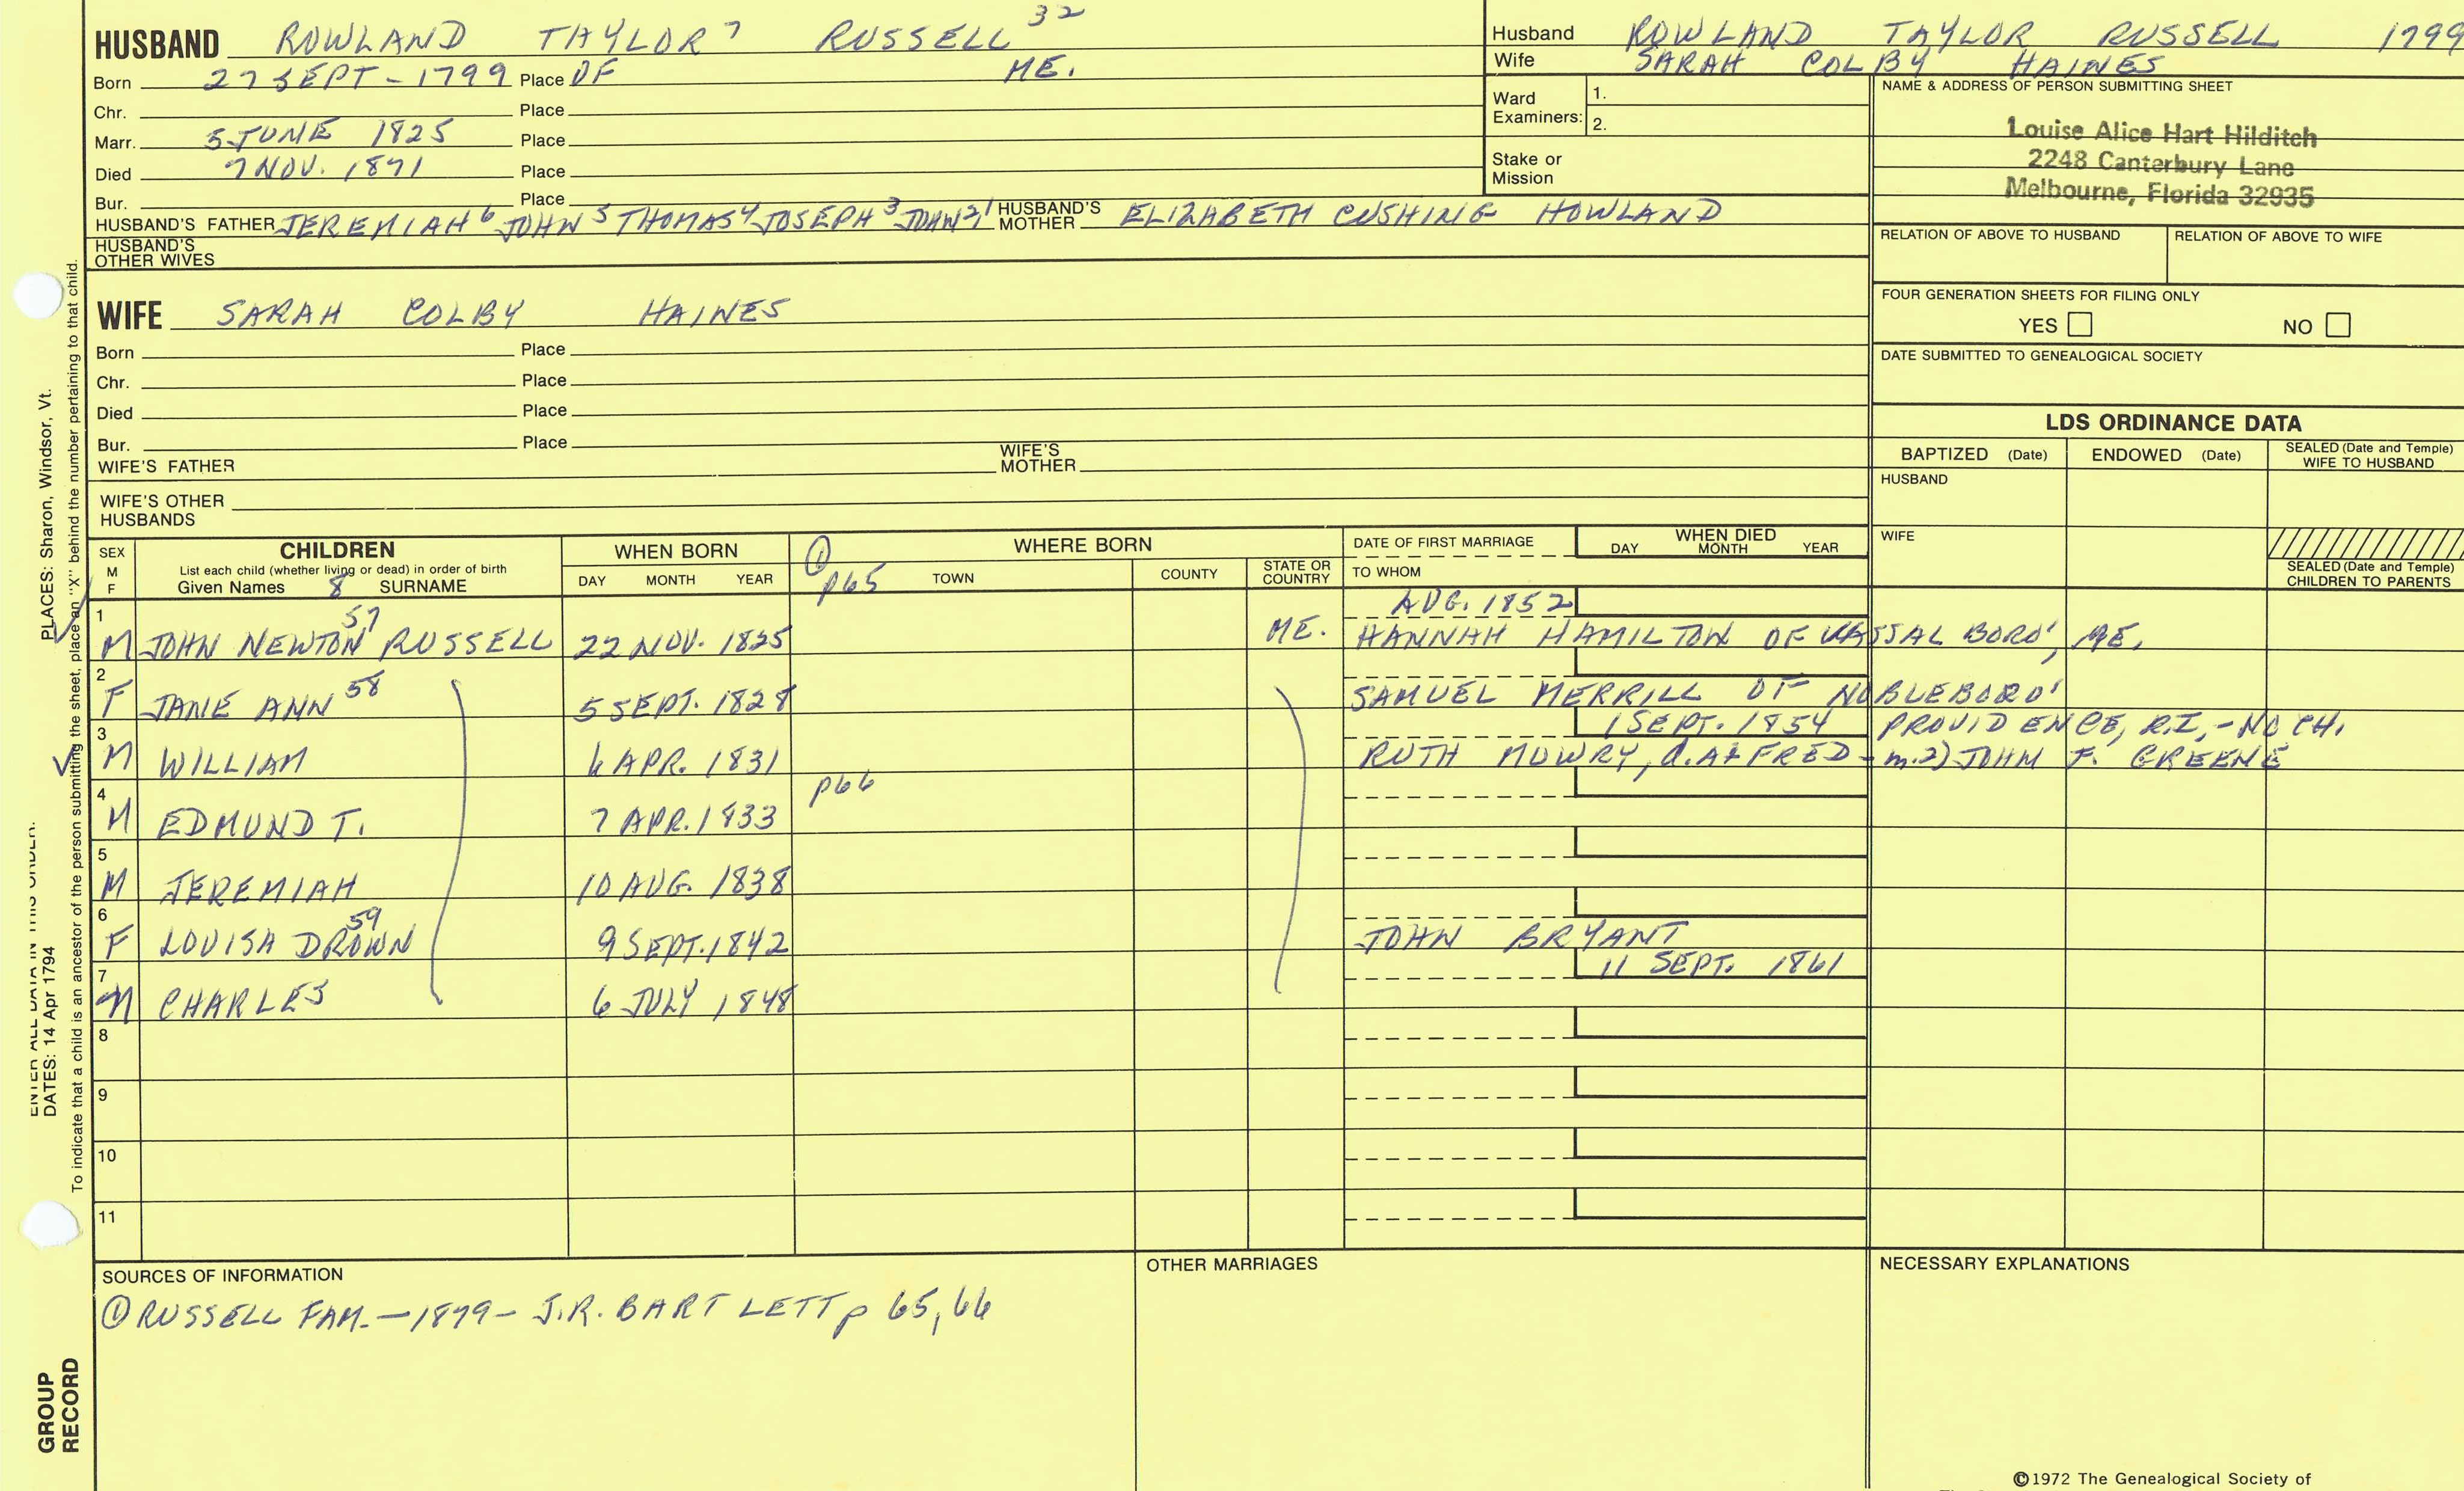 HUSBAND ROWLAND TAYLOR 7 RUSSELL 32
Born 27 SEPT - 1799 Place OF ME.
Chr. Place
Marr. 5 JUNE 1825 Place
Died 7 NOV. 1871 Place
Bur. Place
HUSBAND'S FATHER JEREMIAH 6 JOHN 5 THOMAS 4 JOSEPH 3 JOHN 2, 1 HUSBAND'S MOTHER ELIZABETH CUSHING HOWLAND
HUSBAND'S OTHER WIVES
Husband ROWLAND TAYLOR RUSSELL 1799
Wife SARAH COLBY HAINES
Ward Examiners: 1.
2.
Stake or Mission
NAME & ADDRESS OF PERSON SUBMITTING SHEET
Louise Alice Hart Hilditch
2248 Canterbury Lane
Melbourne, Florida 32935
RELATION OF ABOVE TO HUSBAND RELATION OF ABOVE TO WIFE
FOUR GENERATION SHEETS FOR FILING ONLY
YES NO
DATE SUBMITTED TO GENEALOGICAL SOCIETY
WIFE SARAH COLBY HAINES
Born Place
Chr. Place
Died Place
Bur. Place
WIFE'S FATHER WIFE'S MOTHER
WIFE'S OTHER HUSBANDS
LDS ORDINANCE DATA
BAPTIZED (Date) ENDOWED (Date) SEALED (Date and Temple) WIFE TO HUSBAND
HUSBAND
WIFE
SEALED (Date and Temple) CHILDREN TO PARENTS
SEX M F
CHILDREN
List each child (whether living or dead) in order of birth
Given Names 8 SURNAME
WHEN BORN
DAY MONTH YEAR
① p65
WHERE BORN
TOWN COUNTY STATE OR COUNTRY
DATE OF FIRST MARRIAGE
TO WHOM
WHEN DIED
DAY MONTH YEAR
1 AUG. 1852
M JOHN NEWTON 57 RUSSELL 22 NOV. 1825 ME. HANNAH HAMILTON OF VASSALBORO', ME.
2
F JANE ANN 58 5 SEPT. 1828 SAMUEL MERRILL OF NOBLEBORO'
3 1 SEPT. 1854 PROVIDENCE, R.I. - NO CH.
M WILLIAM 6 APR. 1831 RUTH MOWRY, d. ALFRED - m. 2) JOHN F. GREENE
4 p66
M EDMUND T. 7 APR. 1833
5
M JEREMIAH 10 AUG. 1838
6
F LOUISA DROWN 59 9 SEPT. 1842 JOHN BRYANT
7 11 SEPT. 1861
M CHARLES 6 JULY 1848
8
9
10
11
SOURCES OF INFORMATION
① RUSSELL FAM. - 1879 - J.R. BARTLETT p 65, 66
OTHER MARRIAGES
NECESSARY EXPLANATIONS
©1972 The Genealogical Society of
PLACES: Sharon, Windsor, Vt.
To indicate that a child is an ancestor of the person submitting the sheet, place an "X" behind the number pertaining to that child.
ENTER ALL DATA IN THIS ORDER:
DATES: 14 Apr 1794
GROUP RECORD